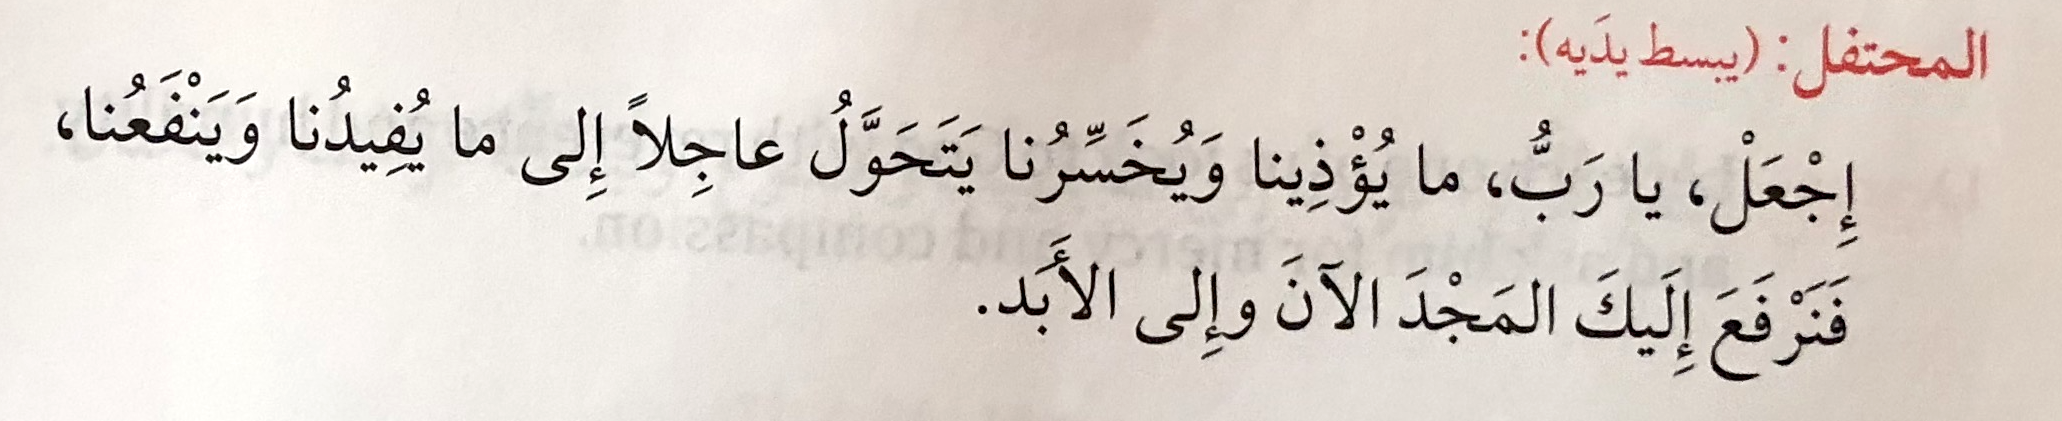 المحتفل: (يبسط يدَيه):
إِجْعَلْ، يا رَبُّ، ما يُؤْذِينا وَيُخَسِّرُنا يَتَحَوَّلُ عاجِلاً إِلى ما يُفِيدُنا وَيَنْفَعُنا،
فَنَرْفَعَ إِلَيكَ المَجْدَ الآنَ وإِلى الأَبَد.